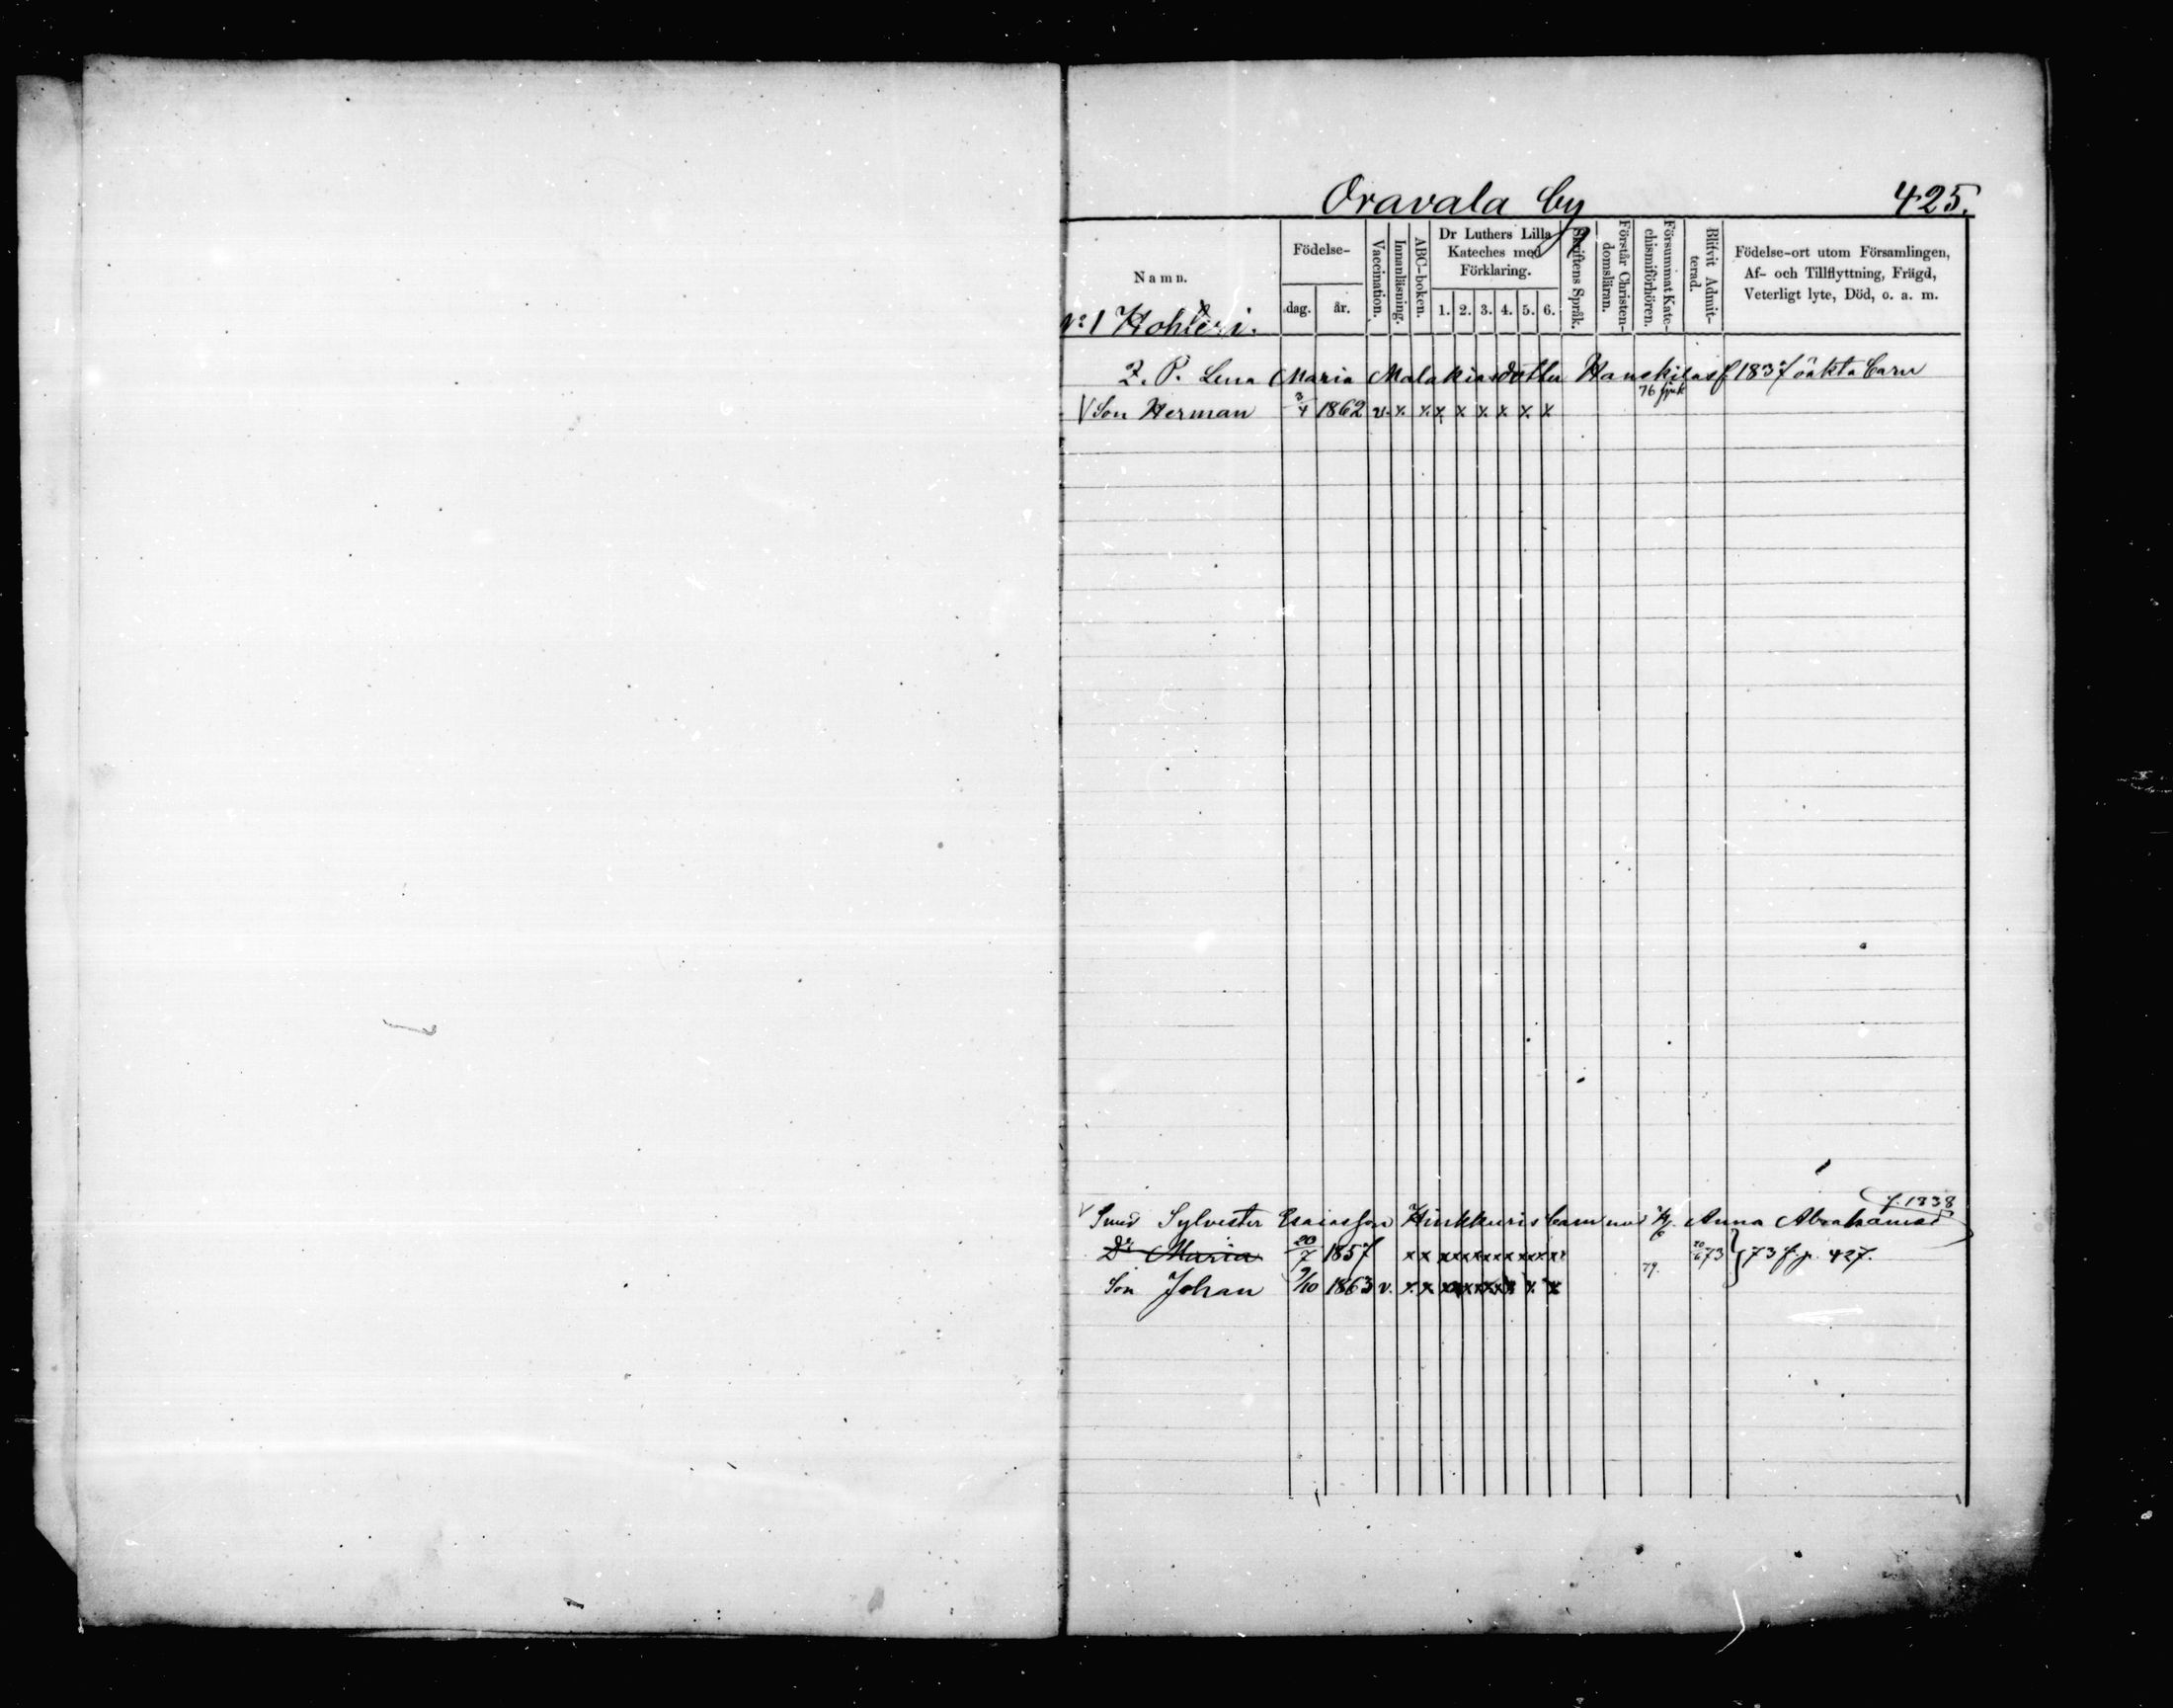 Oravala by 425.
Namn. Födelse- dag. år. Vaccination. Innanläsning. ABC-boken. Dr Luthers Lilla Kateches med Förklaring. 1. 2. 3. 4. 5. 6. Skriftens Språk. Förstår Christendomsläran. Försummat Katechismiförhören. Blifvit Admitterad. Födelse-ort utom Församlingen, Af- och Tillflyttning, Frägd, Veterligt lyte, Död, o. a. m.
No 1 Kohleri.
P. Lena Maria Malakiasdotter Hanskilas f 1837 oäkta barn
76 sjuk
V Son Herman 3/4 1862 v. x x x x x x x x
f. 1838
V Smed Sylvester Esaiasson Hinkkuris barn med Anna Abrahamsd
Dr Maria 20/7 1857 x x x x x x x x x x x x x 73 } 73 f. p. 427.
Son Johan 9/10 1863 v. x x x x x x x x x 79.